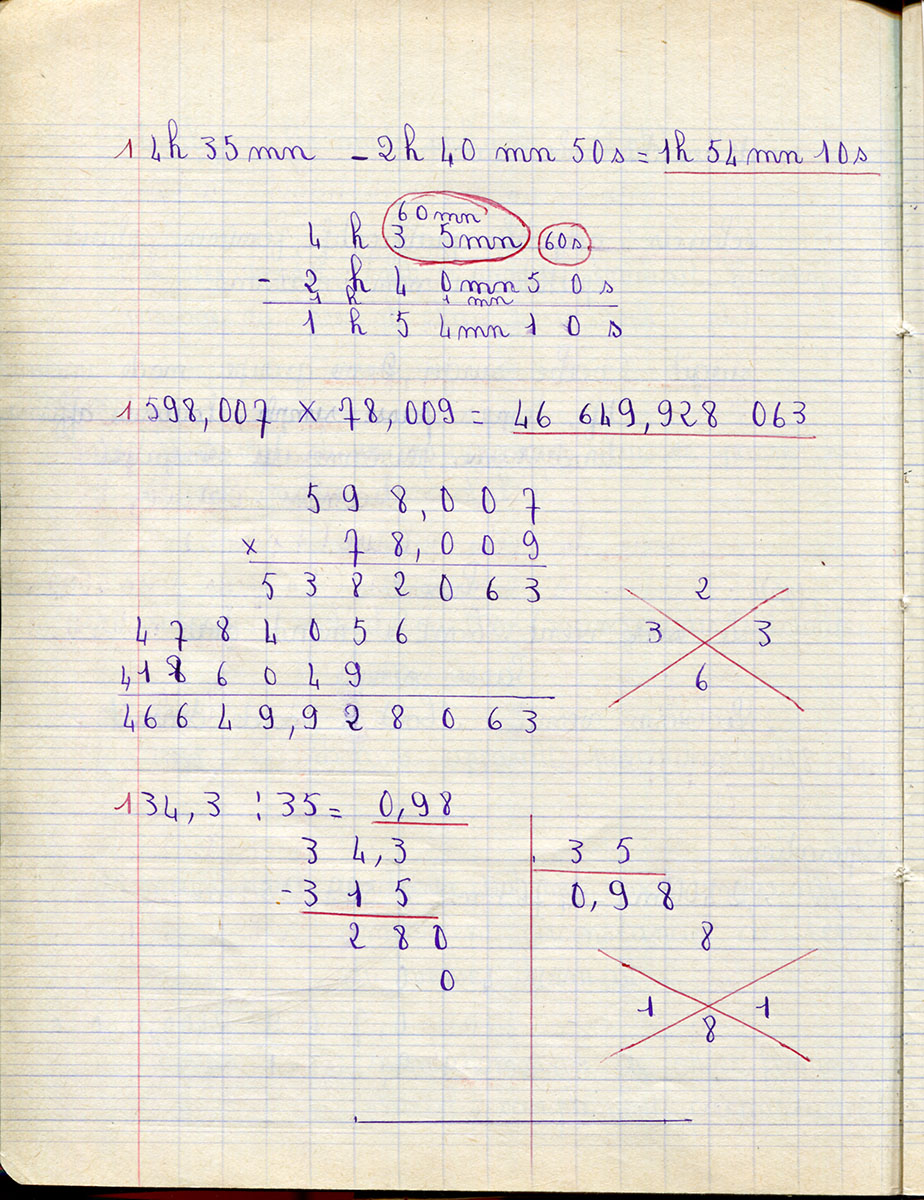 1 4h 35mn - 2h 40 mn 50s = 1h 54mn 10s
60mn
4 h 3 5mn 60s
- 2 h 4 0mn 5 0 s
1 h 1 mn
1 h 5 4mn 1 0 s
1 598,007 × 78,009 = 46 649,928 063
5 9 8,0 0 7
× 7 8,0 0 9
5 3 8 2 0 6 3
4 7 8 4 0 5 6
4 1 8 6 0 4 9
4 6 6 4 9,9 2 8 0 6 3
2
3 3
6
1 34,3 : 35 = 0,98
3 4,3 3 5
- 3 1 5 0,9 8
2 8 0
0
8
1 1
8